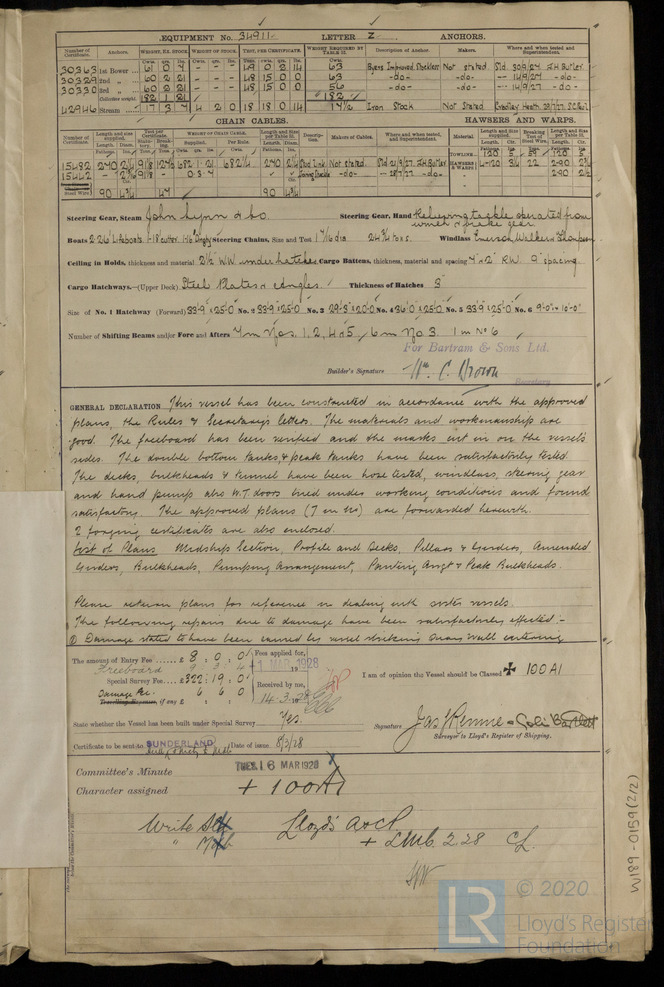 EQUIPMENT No. 34911 LETTER Z ANCHORS.
Number of Certificate. Anchors. WEIGHT, EX. STOCK WEIGHT OF STOCK. TEST, PER CERTIFICATE. WEIGHT REQUIRED BY TABLE 31. Description of Anchor. Makers. Where and when tested and Superintendent.
30363 1st Bower 61 0 7 - - - 49 0 2 14 63 Byers Improved Stockless Not stated Sld. 30/9/27 J.H. Butler
30329 2nd " 60 2 21 - - - 48 15 0 0 63 -do- -do- -- 14/9/27 -do-
30330 3rd " 60 2 21 - - - 48 15 0 0 56 -do- -do- -- 14/9/27 -do-
Collective weight 182 1 21 182
42946 Stream 17 3 7 4 2 0 18 18 0 14 17½ Iron Stock Not Stated Cradley Heath
CHAIN CABLES. HAWSERS AND WARPS.
Number of Certificate. Length and size supplied. Test per Certificate. WEIGHT OF CHAIN CABLE. Length and size per Table 31. Description. Makers of Cables. Where and when tested, and Superintendent. Material. Length and Size supplied. Breaking Test of Steel Wire. Length and Size per Table 31.
Supplied. Per Rule.
15482 270 682 1 21 682¼ 270 Stud Link Not stated J.H. Butler
TOWLINE 120 5 120 5
HAWSERS & WARPS
15442 0 3 4 -do- -do-
Steel Wire 90 47 90
Steering Gear, Steam John Lynn & Co. Steering Gear, Hand Relieving tackle operated from winch & brake gear.
Boats 2 26' Lifeboats 1-18' cutter, 1-16' Dinghy Steering Chains, Size and Test 1 7/16 dia 24¾ tons. Windlass Emerson Walker & Thompson
Ceiling in Holds, thickness and material 2½" W.W. under hatches Cargo Battens, thickness, material and spacing 7" x 2" R.W. 9" spacing.
Cargo Hatchways.—(Upper Deck) Steel Plates & Angles. Thickness of Hatches 3"
Size of No. 1 Hatchway (Forward) 33'-9" x 25'-0" No. 2 33'-9" x 25'-0" No. 3 29'-3" x 20'-0" No. 4 36'-0" x 25'-0" No. 5 33'-9" x 25'-0" No. 6 9'-0" x 10'-0"
Number of Shifting Beams and/or Fore and Afters 7 in Nos. 1, 2, 4 & 5, 6 in No 3. 1 in No 6
For Bartram & Sons Ltd.
Builder's Signature Wm. C. Brown
Secretary
GENERAL DECLARATION This vessel has been constructed in accordance with the approved
plans, the Rules & Secretary's letters. The materials and workmanship are
good. The freeboard has been verified and the marks cut in on the vessel's
sides. The double bottom tanks & peak tanks have been satisfactorily tested
The decks, bulkheads & tunnel have been hose tested, windlass, steering gear
and hand pump also W.T. doors tried under working conditions and found
satisfactory. The approved plans (7 in No) are forwarded herewith.
2 forging certificates are also enclosed.
List of Plans Midship Section, Profile and Decks, Pillars & Girders, Amended
Girders, Bulkheads, Pumping Arrangement, Panting Arrgt & Peak Bulkheads.
Please return plans for reference in dealing with sister vessels.
The following repairs due to damage have been satisfactorily effected :-
① Damage stated to have been caused by vessel striking Quay wall entering
The amount of Entry Fee £ 8 : 0 : 0
Freeboard 9 3 4
Special Survey Fee £322 : 19 : 0
Damage fee. 6 6 0
Travelling Expenses, if any £ : :
Fees applied for,
1 MAR 1928
Received by me,
14-3-1928
I am of opinion the Vessel should be Classed ✠ 100A1
State whether the Vessel has been built under Special Survey Yes.
Signature Jas Rennie & Colin Bartlett
Surveyor to Lloyd's Register of Shipping.
Certificate to be sent to SUNDERLAND Date of issue 8/3/28
Committee's Minute TUES. 6 MAR 1928
Character assigned + 100A1
Write Sld Lloyd's A & CP.
" + LMC 2.28 CL.
W189-0159(2/2)
LR
© 2020
Lloyd's Register
Foundation